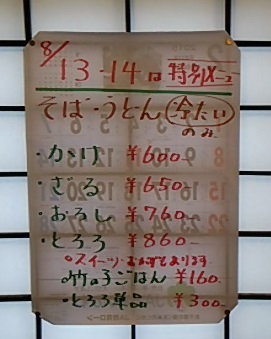 8/13-14は特別メニュー
そば・うどん 冷たい
のみ
・かけ ¥600-
・ざる ¥650-
・おろし ¥760-
・とろろ ¥860-
竹の子ごはん ¥160.
・とろろ単品 ¥300-